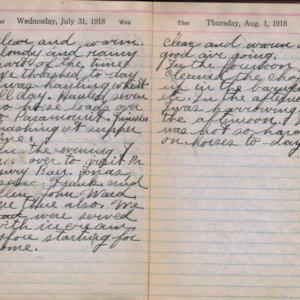 Tues
Wednesday, July 31, 1918
Wed
Clear and warm
cloudy and rainy
part of the time
We thrashed to-day
I was hauling wheat
all day. Hauled seven
loads over
to Paramount. Finished
thrashing at supper
time.
In the evening I
was over to visit
Jonas
Frank and
John Ward
were there also. We
had were served
with ice cream
before starting for
home.
Thur
Thursday, Aug. 1, 1918
Clear and warm
good air going.
In the forenoon I
cleaned the chaff
up in the barn
etc. In the afternoon
I was harrowing
the afternoon. It
was not so hard
on horses to-day.